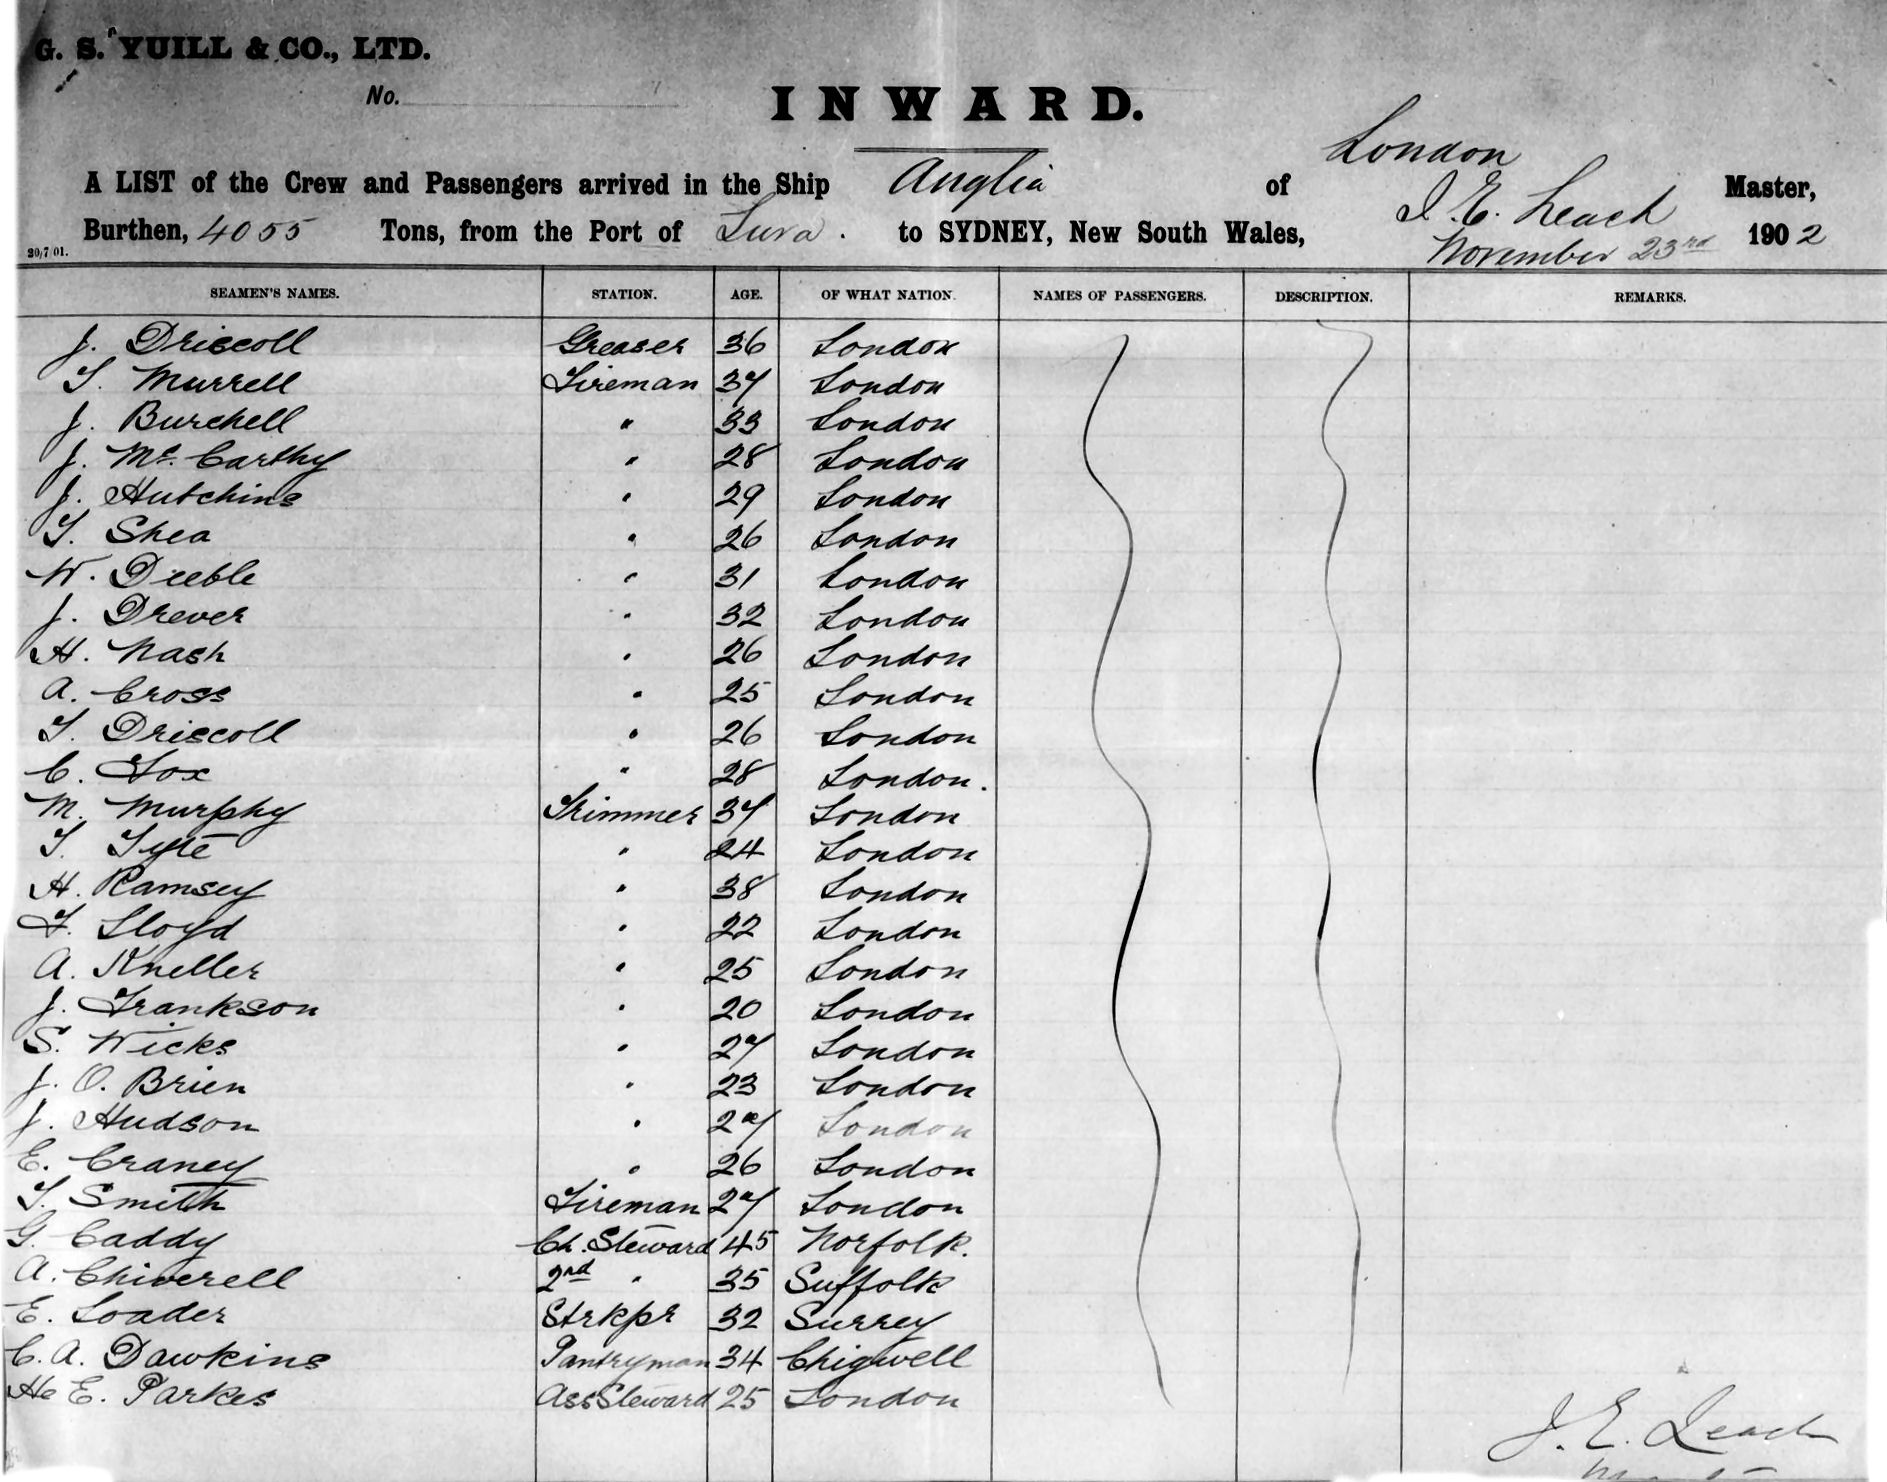 G. S. YUILL & CO., LTD.
No.
INWARD.
London
A LIST of the Crew and Passengers arrived in the Ship Anglia of J. E. Leach Master,
Burthen, 4055 Tons, from the Port of Suva. to SYDNEY, New South Wales, November 23rd 1902
20/7/01.
SEAMEN'S NAMES. STATION. AGE. OF WHAT NATION. NAMES OF PASSENGERS. DESCRIPTION. REMARKS.
J. Driscoll Greaser 36 London
T. Murrell Fireman 37 London
J. Burchell " 33 London
J. Mc. Carthy " 28 London
J. Hutchins " 29 London
T. Shea " 26 London
W. Deeble " 31 London
J. Drever " 32 London
H. Nash " 26 London
A. Cross " 25 London
T. Driscoll " 26 London
C. Fox " 28 London.
M. Murphy Trimmer 37 London
T. Tyte " 24 London
H. Ramsey " 38 London
F. Lloyd " 22 London
A. Kneller " 25 London
J. Frankson " 20 London
S. Wicks " 27 London
J. O. Brien " 23 London
J. Hudson " 27 London
E. Craney " 26 London
T. Smith Fireman 27 London
G. Caddy Ch. Steward 45 Norfolk.
A. Chiverell 2nd " 35 Suffolk
E. Loader Strkpr 32 Surrey
C. A. Dawkins Pantryman 34 Chigwell
E. Parkes Ass Steward 25 London
J. E. Leach